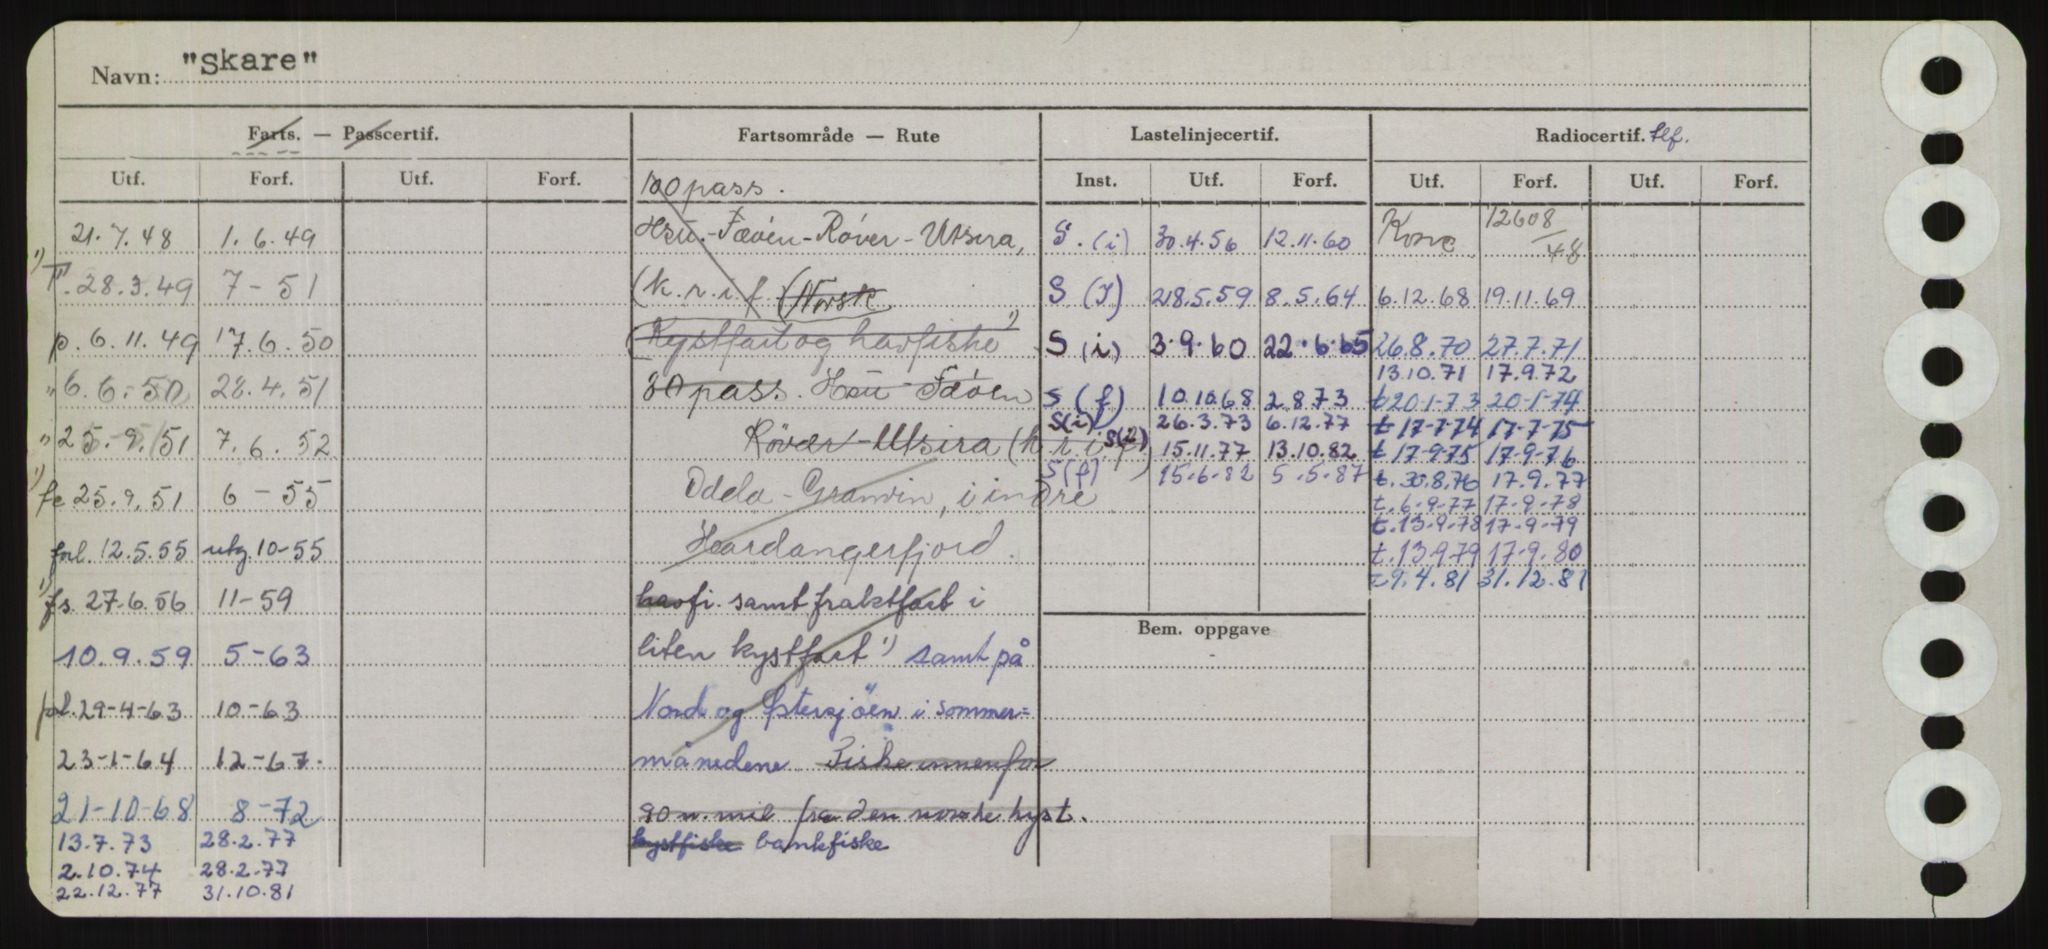 Navn: "Skare"
Farts. — Passcertif. Fartsområde — Rute Lastelinjecertif. Radiocertif. tlf.
Utf. Forf. Utf. Forf. 100 pass. Inst. Utf. Forf. Utf. Forf. Utf. Forf.
21.7.48 1.6.49 Hsu.-Fæøen-Røver-Utsira, S.(i) 30.4.56 12.11.60 12608/48
1) T. 28.3.49 7-51 (k.r.i.f. (Norsk S (I) 28.5.59 8.5.64 6.12.68 19.11.69
p. 6.11.49 17.6.50 (Kystfart og havfiske 1) S (i) 3.9.60 22.6.65 26.8.70 27.7.71
13.10.71 17.9.72
" 6.6.50 28.4.51 80 pass. Hsu-Fæøen S (f) 10.10.68 2.8.73 t 20-1-73 20-1-74
S(i) 26.3.73 6.12.77 t 17-7-74 17-7-75
" 25.9.51 7.6.52 Røvær-Utsira (k.r.i.f.) S(i) 15.11.77 13.10.82 t 17-9-75 17-9-76
S(f) 15.6.82 5.5.87 t.30.8.76 17.9.77
1) fe 25.9.51 6-55 Odda-Granvin, i indre
t.6-9-77 17-9-78
t.13-9-78 17-9-79
forl. 12.5.55 utg. 10-55 Hardangerfjord. t.13-9-79 17-9.80
t 9.4.81 31.12.81
1) fs. 27.6.56 11-59 havfi. samt fraktfart i
Bem. oppgave
10.9.59 5-63 liten kystfart 1) samt på
forl. 29-4-63 10-63 Nord og Østersjöen i sommer=
23-1-64 12-67. månedene Fiske innenfor
21-10-68 8-72 90 n.mil fra den norske kyst.
13.7.73 28.2.77 kystfiske bankfiske
2.10.74 28.2.77
22.12.77 31.10.81